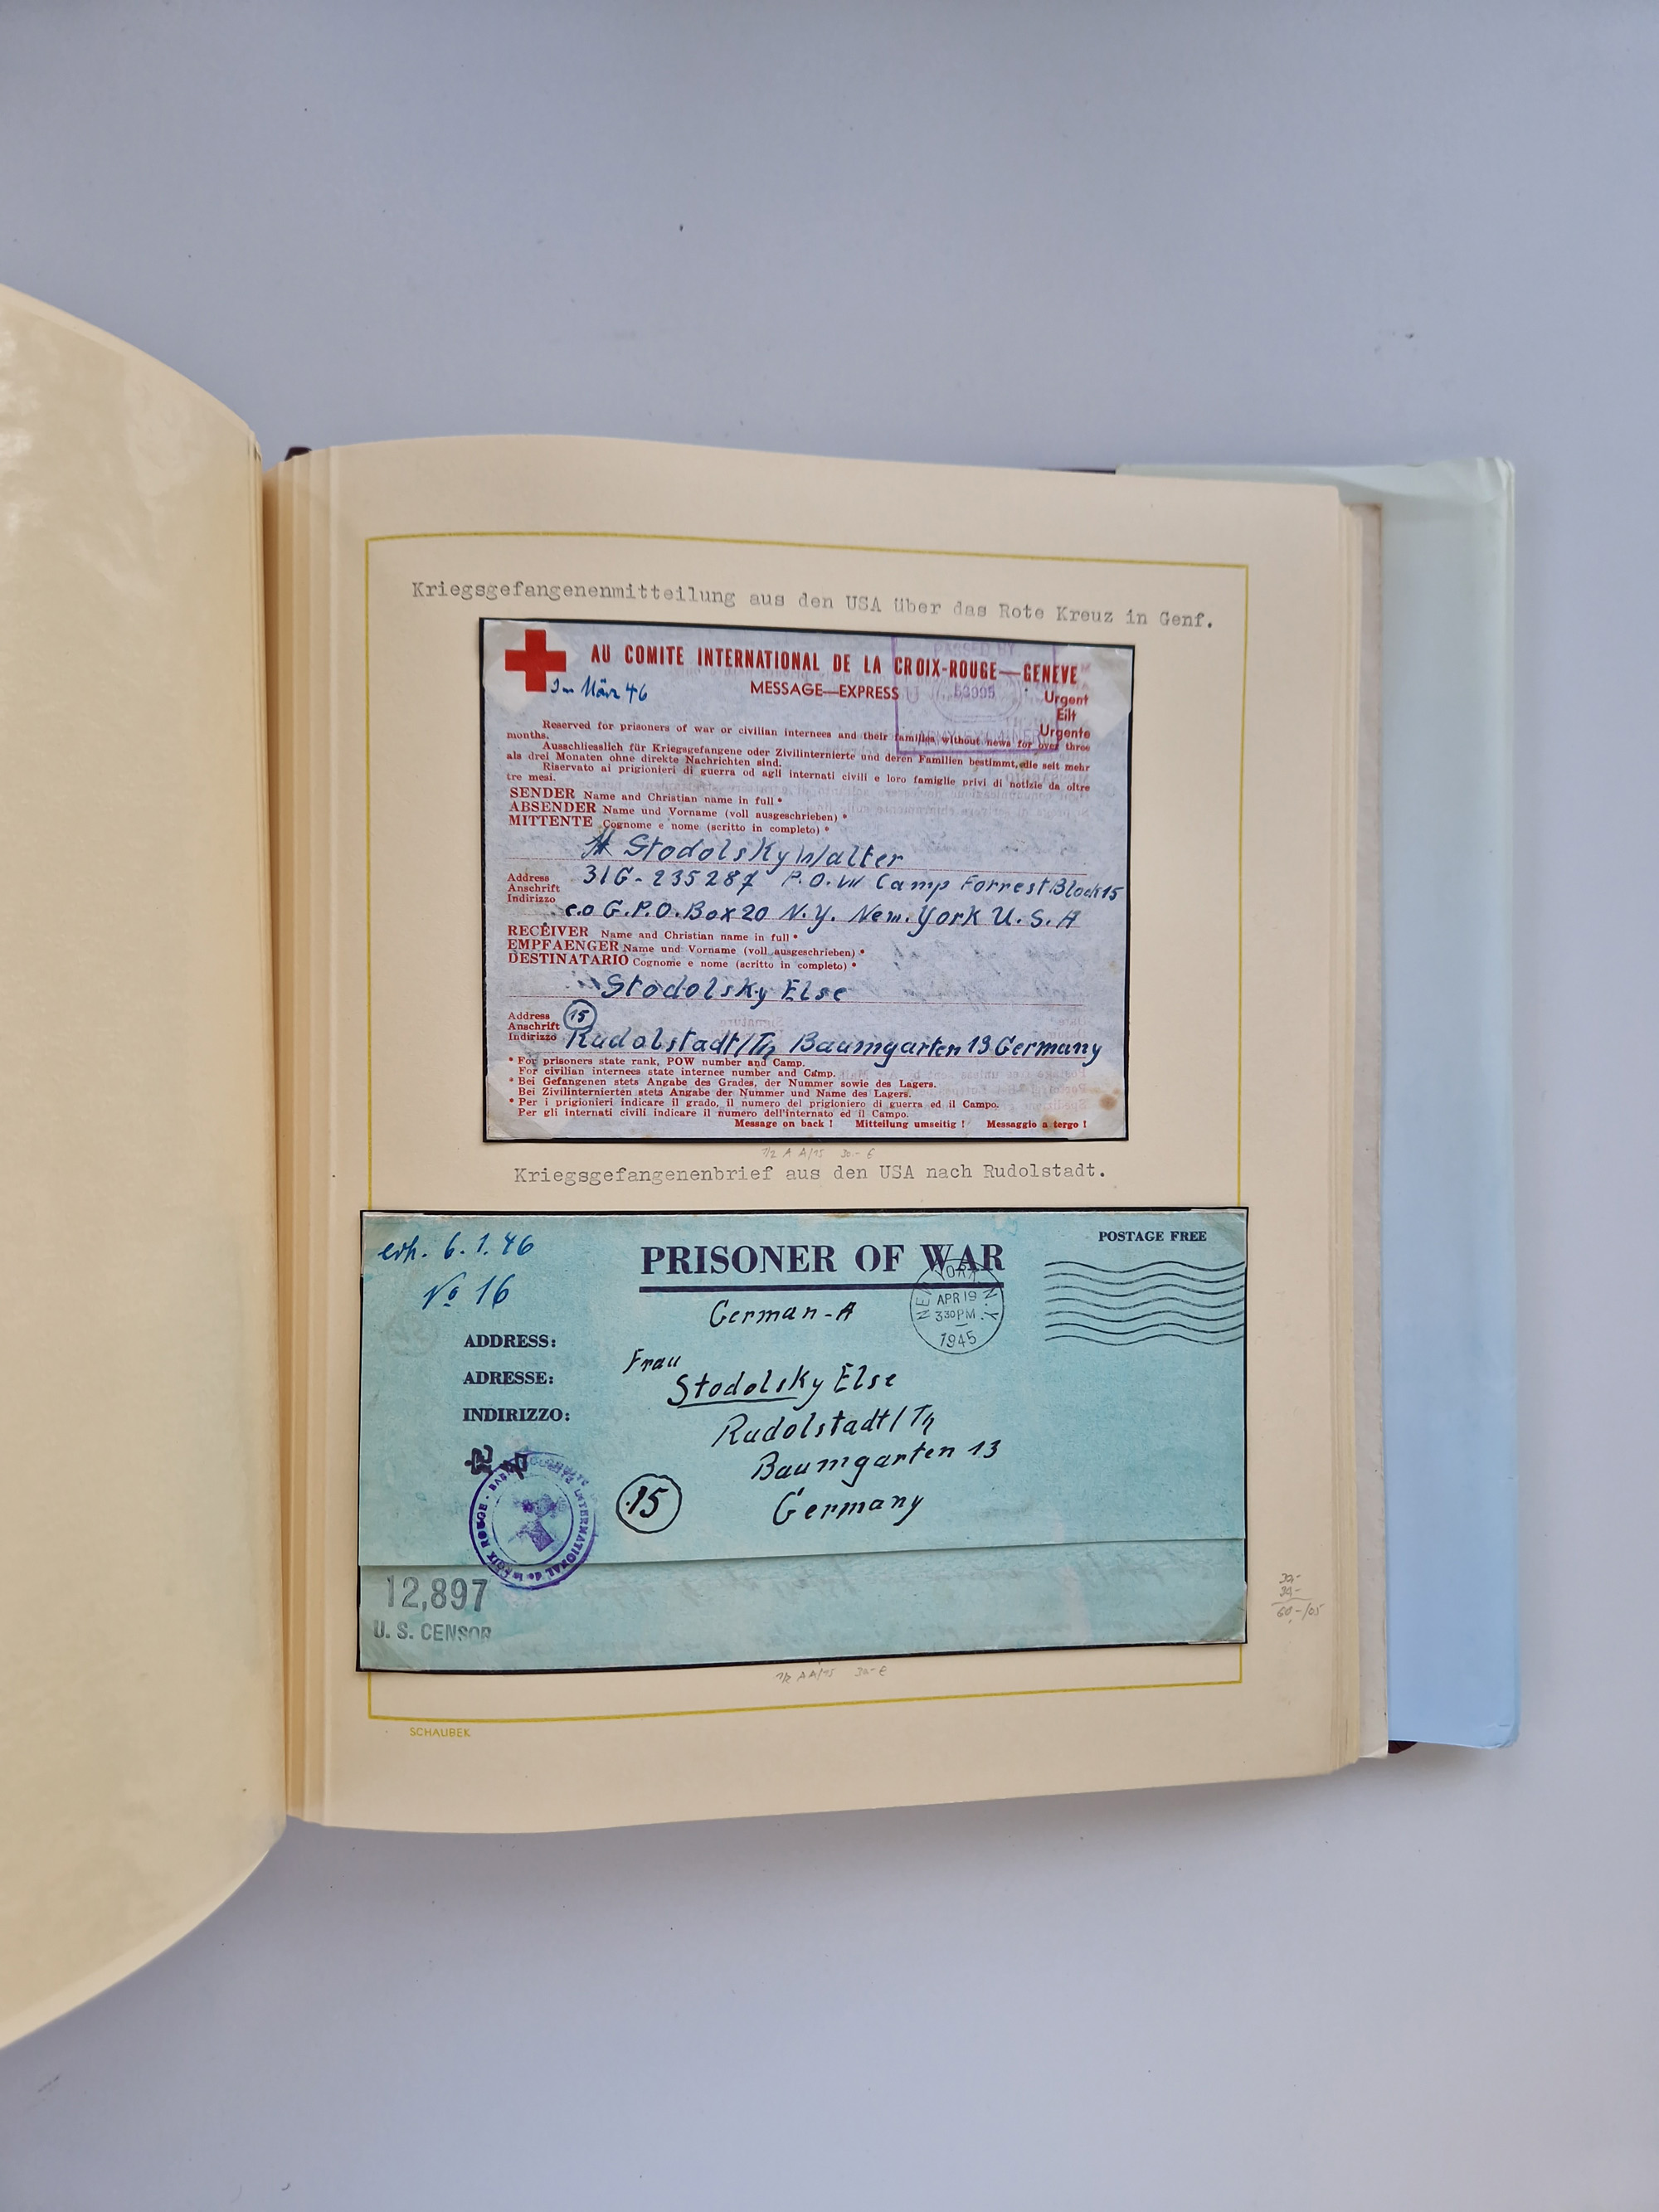 Kriegsgefangenenmitteilung aus den USA über das Rote Kreuz in Genf.
AU COMITE INTERNATIONAL DE LA CROIX-ROUGE—GENEVE
MESSAGE—EXPRESS
Im März 46
PASSED BY
53005
Urgent
Eilt
Urgente
Reserved for prisoners of war or civilian internees and their families without news for over three
months.
Ausschliesslich für Kriegsgefangene oder Zivilinternierte und deren Familien bestimmt, die seit mehr
als drei Monaten ohne direkte Nachrichten sind.
Riservato ai prigionieri di guerra od agli internati civili e loro famiglie privi di notizie da oltre
tre mesi.
SENDER Name and Christian name in full *
ABSENDER Name und Vorname (voll ausgeschrieben) *
MITTENTE Cognome e nome (scritto in completo) *
Stodolsky Walter
Address
Anschrift
Indirizzo
31G-235287 P.O.W Camp Forrest Block 15
c.o G.P.O. Box 20 N.Y. New.York U.S.A
RECEIVER Name and Christian name in full *
EMPFAENGER Name und Vorname (voll ausgeschrieben) *
DESTINATARIO Cognome e nome (scritto in completo) *
Stodolsky Else
Address
Anschrift
Indirizzo
15
Rudolstadt/Th Baumgarten 13 Germany
* For prisoners state rank, POW number and Camp.
For civilian internees state internee number and Camp.
* Bei Gefangenen stets Angabe des Grades, der Nummer sowie des Lagers.
Bei Zivilinternierten stets Angabe der Nummer und Name des Lagers.
* Per i prigionieri indicare il grado, il numero del prigioniero di guerra ed il Campo.
Per gli internati civili indicare il numero dell'internato ed il Campo.
Message on back ! Mitteilung umseitig ! Messaggio a tergo !
30.- €
Kriegsgefangenenbrief aus den USA nach Rudolstadt.
erh. 6.1.46
No 16
PRISONER OF WAR
POSTAGE FREE
German-A
NEW YORK, N.Y.
APR 19
3 30 PM
1945
ADDRESS:
ADRESSE:
INDIRIZZO:
Frau
Stodolsky Else
Rudolstadt/Th
Baumgarten 13
15
Germany
COMITE INTERNATIONAL de la CROIX ROUGE
12,897
U. S. CENSOR
30.- €
SCHAUBEK